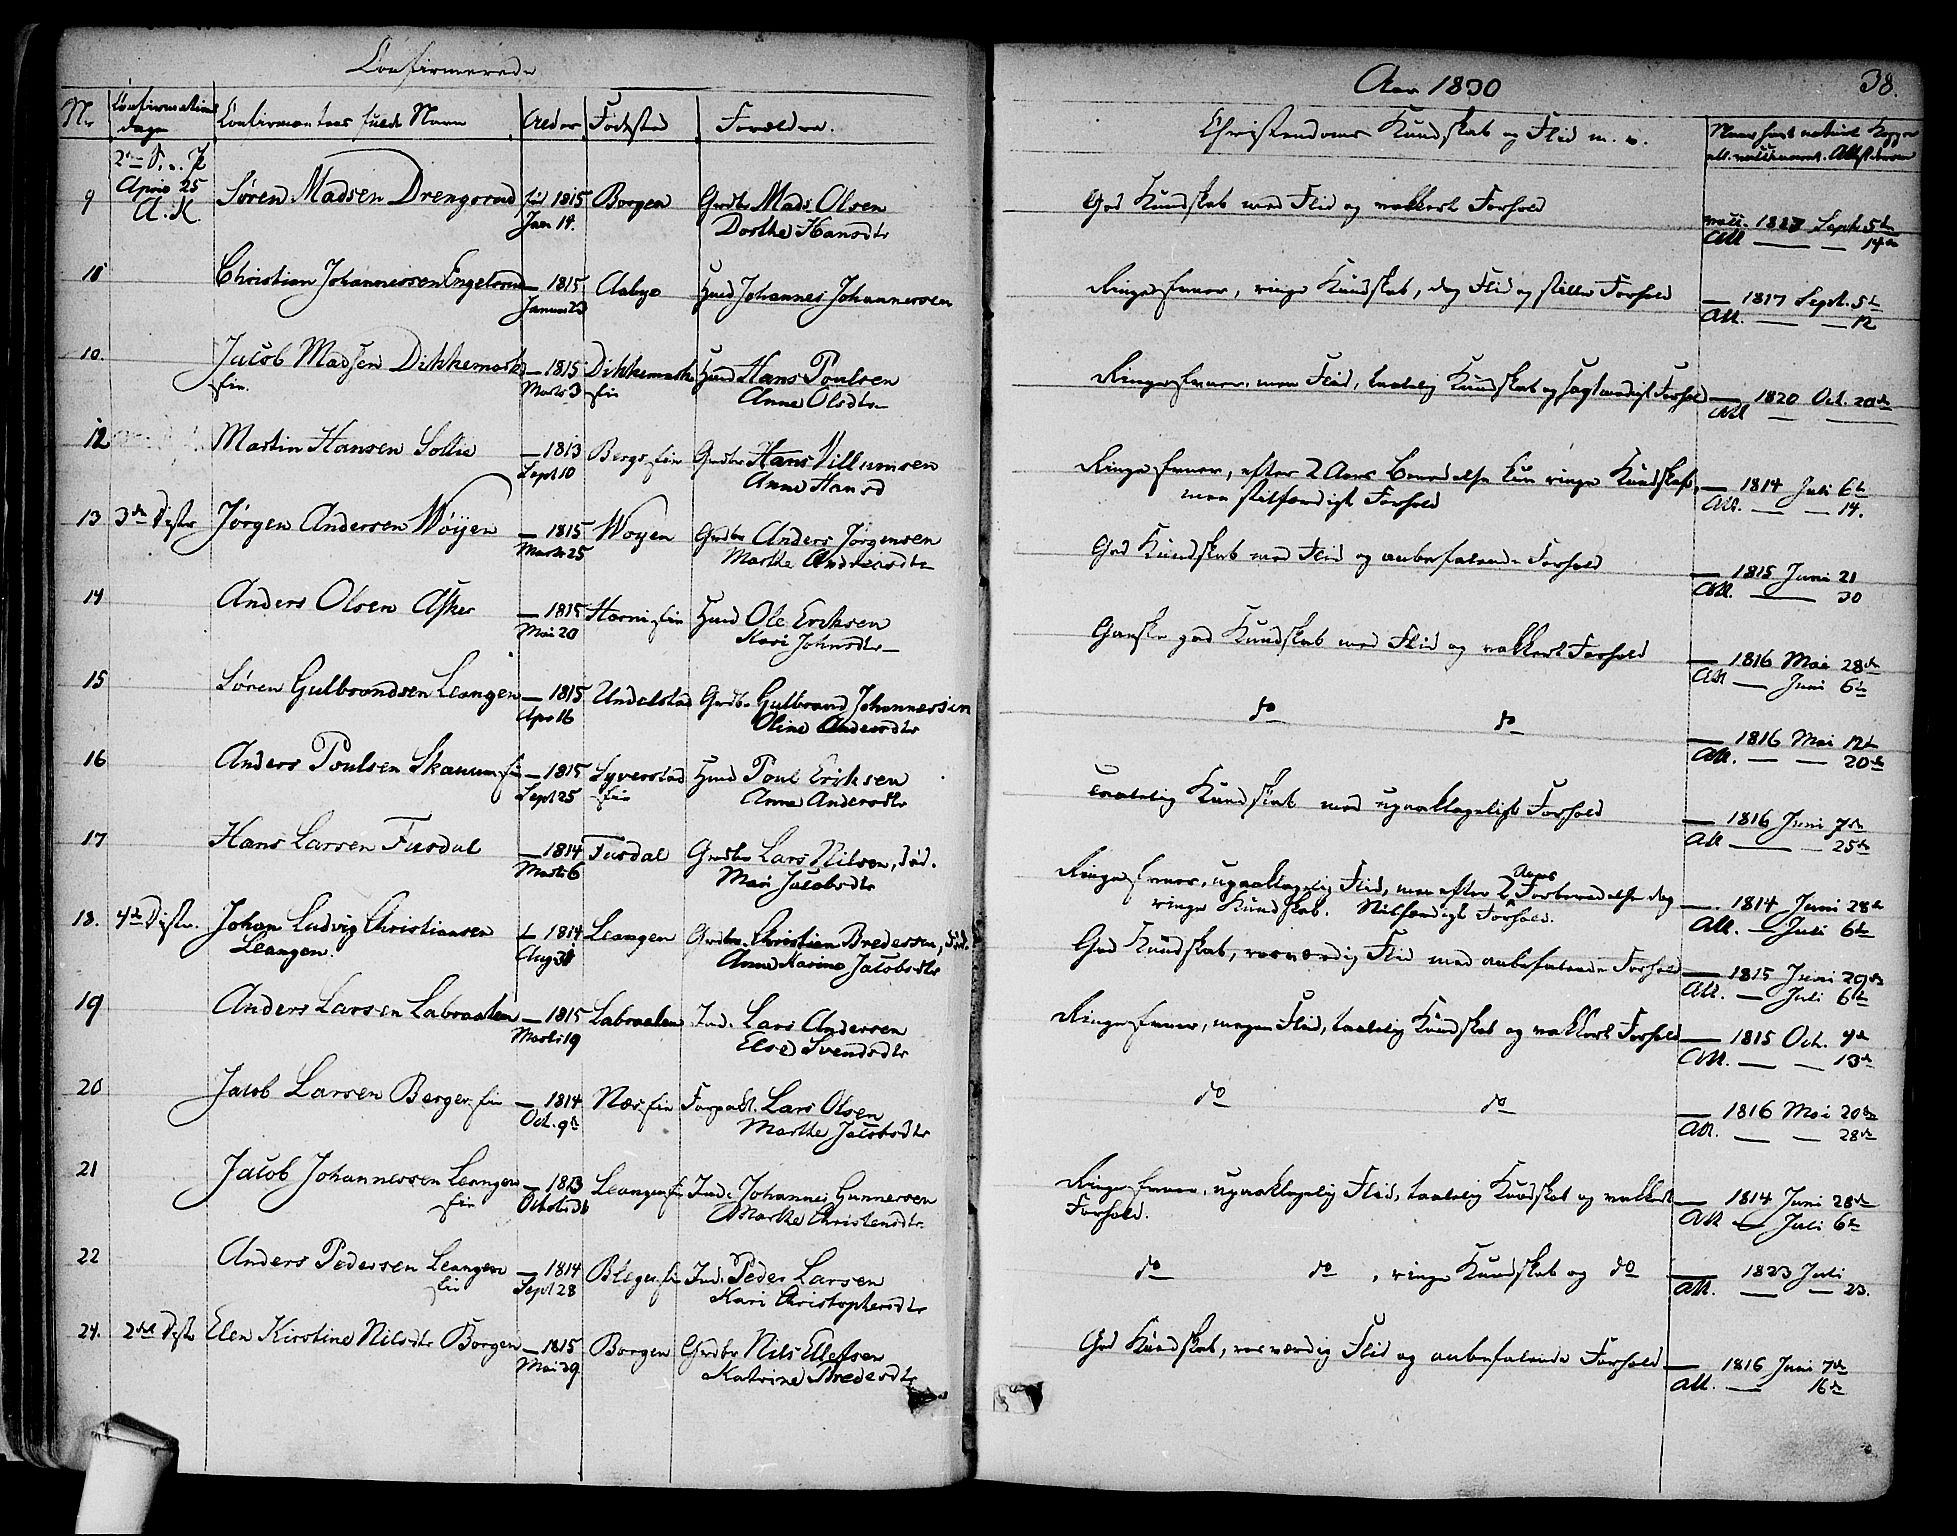 Confirmerede
Nr Confirmations dage Confirmantens fulde Navn Alder Fødested Forældre.
2den S. e. P. April 25 A. K
9 Søren Madsen Drengsrud 1815 Jan 14. Borgen Grdbr Mads Olsen
Dorthe Hansdtr
Christian Johannessen Engelsrud — 1815 Januar 23 Aabye Husmd Johannes Johannessen
10. Jacob Madsen Dikkemark — 1815 Marts 3 Dikkemark Husmd Hans Poulsen
eie. eie Anne Olsdtr
12 Martin Hansen Sollie — 1813 Sept 10 Bergs eie Grdbr Hans Villumsen
Anne Hansd
13 3die Distr Jørgen Andersen Wøyen — 1815 Marts 25 Woyen Grdbr Anders Jørgensen
Marthe Andersdtr
14 Anders Olsen Asker — 1815 Mai 20 Harni eie Husmd Ole Eriksen
Kari Johnsdtr
15 Søren Gulbrandsen Leangen — 1815 Apr 16 Undelstad Grdbr Gulbrand Johannessen
Oline Andersdtr
16 Anders Poulsen Skaum eie — 1815 Sept 25 Syverstad eie Husmd Poul Eriksen
Anne Andersdtr
17 Hans Larsen Fusdal — 1814 Marts 6 Fusdal Grdbr Lars Nilsen, død.
Mari Jacobsdtr
18. 4de Distr. Johan Ludvig Christiansen Leangen. — 1814 Aug 31 Leangen Grdbr. Christian Bredessen, død.
Anne Karine Jacobsdtr
19 Anders Larsen Labraaten — 1815 Marts 19 Labraaten Ind. Lars Andersen
Else Svendsdtr
20 Jacob Larsen Berger eie — 1814 Oct. 9de Næs eie Forpagt. Lars Olsen
Marthe Jacobsdtr
21 Jacob Johannessen Leangen eie — 1813 Leangen eie Ind. Johannes Gunnersen
Marthe Christensdtr.
22 Anders Pedersen Leangen eie — 1814 Sept 28 Bleger eie Ind. Peder Larsen
Kari Christophersdtr
24. 2det Distr Elen Kirstine Nilsdtr Borgen — 1815 Mai 29 Borgen Grdbr Nils Ellefsen
Katrine Bredesdtr
Aar 1830 38.
Christendoms Kundskab og Flid m. v. Naar havt naturl. Kopper ell. vaccineret. Attesteren
God Kundskab med Flid og vakkert Forhold vacc. 1827 Sept. 5te
Att — — 14de
Ringe Evner, ringe Kundskab, dog Flid og stille Forhold — 1817 Sept. 5te
Att. — — 12
Ringe Evner, men Flid, taalelig Kundskab og sagtmodigt Forhold — 1820 Oct. 20de
Att —
Ringe Evner, efter 2 Aars Beredelse kun ringe Kundskab, — 1814 Juli 6te
men stilfærdigt Forhold Att. — — 14.
God Kundskab med Flid og anbefalende Forhold — 1815 Juni 21
Att. — 30
Ganske god Kundskab med Flid og vakkert Forhold — 1816 Mai 28de
Att — Juni 6te
do do — 1816 Mai 12te
Att. — — 20de
taalelig Kundskab med upaaklageligt Forhold — 1816 Juni 7de
Att — 25de
Ringe Evner, upaaklagelig Flid, men efter 2 Aars Forberedelse dog — 1814 Juni 28de
ringe Kundskab. Stilfærdigt Forhold. Att. — Juli 6te
God Kundskab, rosværdig Flid med anbefalende Forhold — 1815 Juni 29de
Att. — Juli 6te
Ringe Evner, megen Flid, taalelig Kundskab og vakkert Forhold — 1815 Oct. 4de
Att. — — 13de
do do — 1816 Mai 20de
Att. — — 28de
Ringe Evner, upaaklagelig Flid, taalelig Kundskab og vakkert — 1814 Juni 28de
Forhold. Att — Juli 6te
do do, ringe Kundskab og do — 1823 Juli
Att. — — 23.
God Kundskab, rosværdig Flid og anbefalende Forhold — 1816 Juni 7de
Att. — 16de